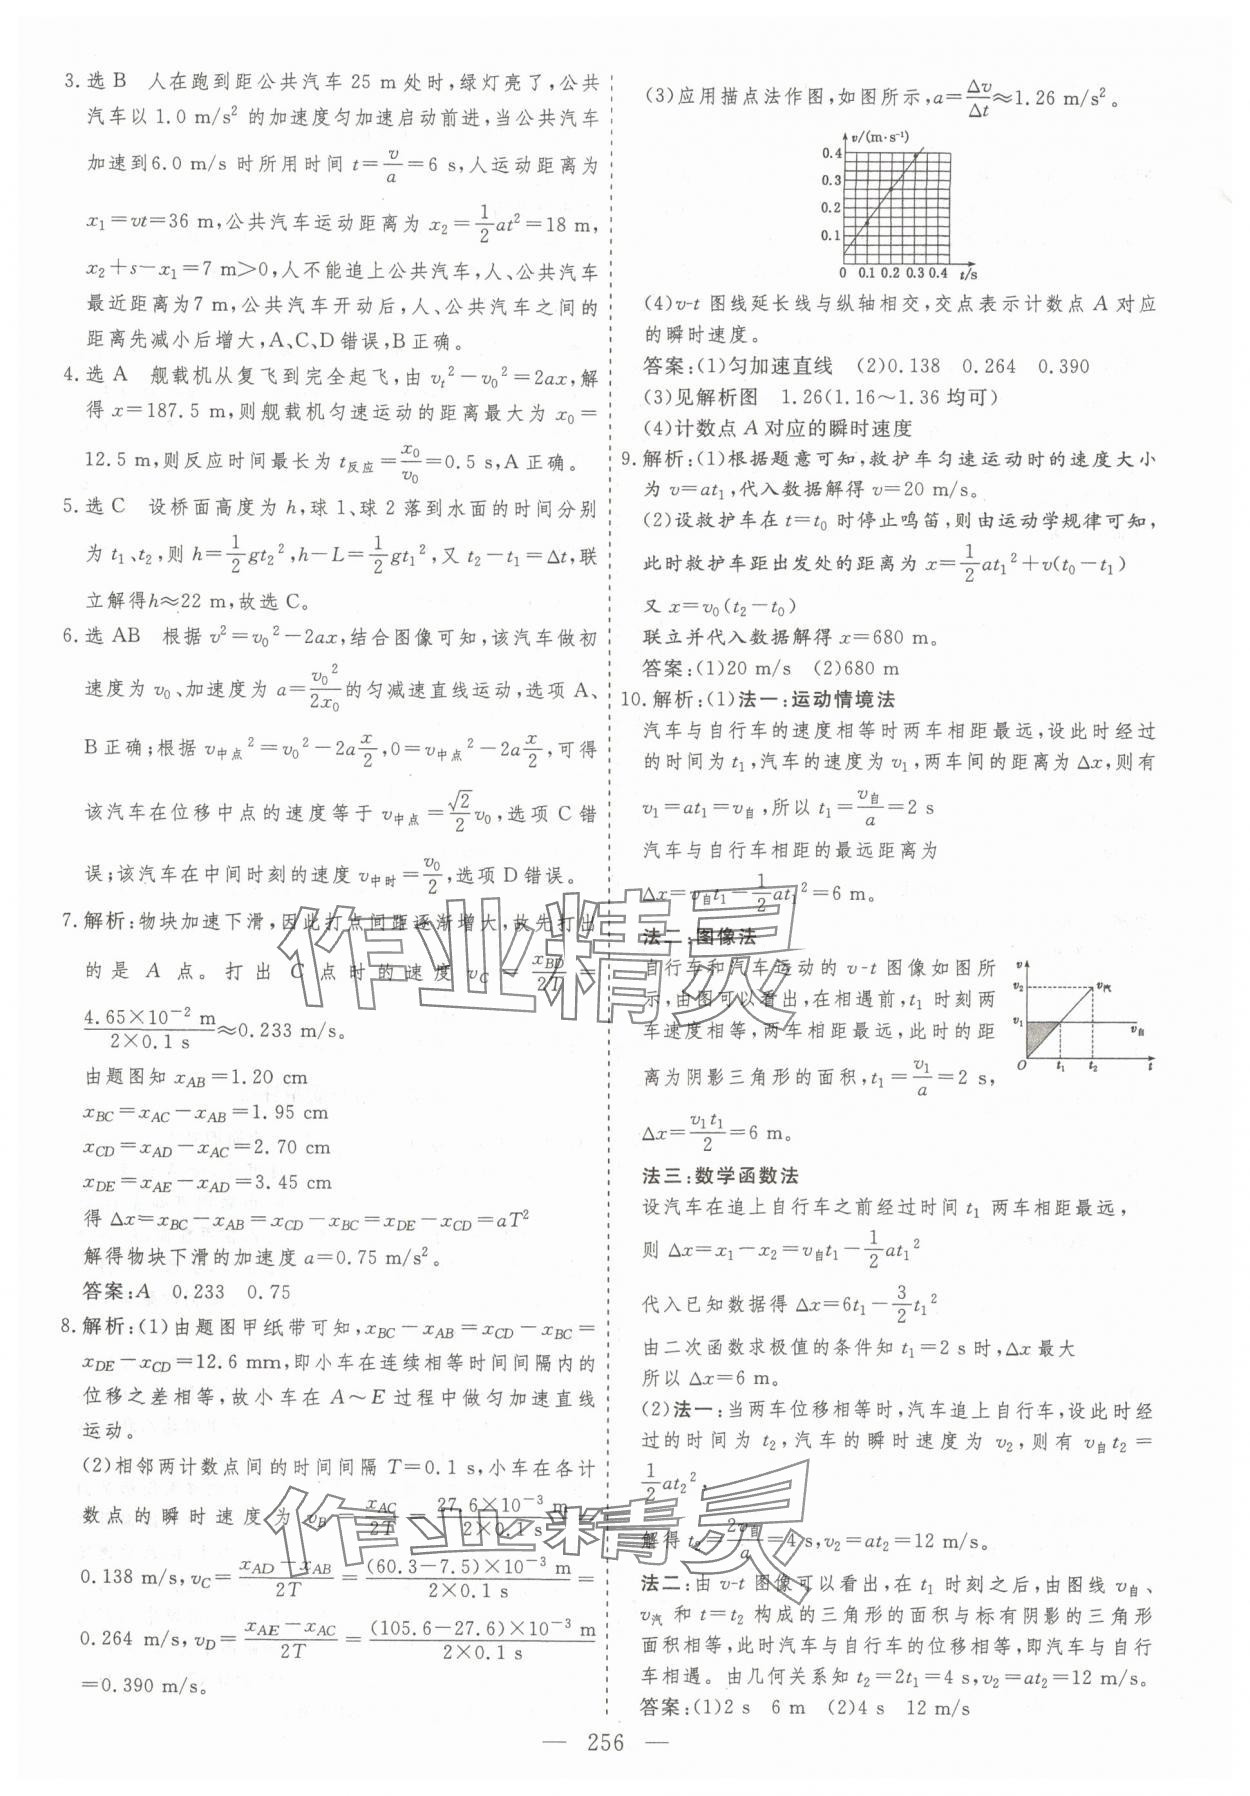 3. 选 B　人在跑到距公共汽车 25 m 处时,绿灯亮了,公共
汽车以 1.0 m/s² 的加速度匀加速启动前进,当公共汽车
加速到6.0 m/s 时所用时间 t=v/a=6 s,人运动距离为
x₁=vt=36 m,公共汽车运动距离为 x₂=1/2at²=18 m,
x₂+s-x₁=7 m>0,人不能追上公共汽车,人、公共汽车
最近距离为7 m,公共汽车开动后,人、公共汽车之间的
距离先减小后增大,A、C、D 错误,B 正确。
4. 选 A　舰载机从复飞到完全起飞,由 vₜ²-v₀²=2ax,解
得 x=187.5 m,则舰载机匀速运动的距离最大为 x₀=
12.5 m,则反应时间最长为 t反应=x₀/v₀=0.5 s,A 正确。
5. 选 C　设桥面高度为 h,球 1、球 2 落到水面的时间分别
为 t₁、t₂,则 h=1/2gt₂²,h-L=1/2gt₁²,又 t₂-t₁=Δt,联
立解得h≈22 m,故选 C。
6. 选 AB　根据 v²=v₀²-2ax,结合图像可知,该汽车做初
速度为 v₀、加速度为 a=v₀²/2x₀的匀减速直线运动,选项 A、
B 正确;根据 v中点²=v₀²-2a x/2,0=v中点²-2a x/2,可得
该汽车在位移中点的速度等于 v中点=√2/2v₀,选项 C 错
误;该汽车在中间时刻的速度 v中时=v₀/2,选项 D 错误。
7. 解析:物块加速下滑,因此打点间距逐渐增大,故先打出
的是 A 点。打出 C 点时的速度 v_C=x_BD/2T=
4.65×10⁻² m/2×0.1 s≈0.233 m/s。
由题图知 x_AB=1.20 cm
x_BC=x_AC-x_AB=1.95 cm
x_CD=x_AD-x_AC=2.70 cm
x_DE=x_AE-x_AD=3.45 cm
得 Δx=x_BC-x_AB=x_CD-x_BC=x_DE-x_CD=aT²
解得物块下滑的加速度 a=0.75 m/s²。
答案:A　0.233　0.75
8. 解析:(1)由题图甲纸带可知,x_BC-x_AB=x_CD-x_BC=
x_DE-x_CD=12.6 mm,即小车在连续相等时间间隔内的
位移之差相等,故小车在 A～E 过程中做匀加速直线
运动。
(2)相邻两计数点间的时间间隔 T=0.1 s,小车在各计
数点的瞬时速度为 v_B=x_AC/2T=27.6×10⁻³ m/2×0.1 s=
0.138 m/s,v_C=x_AD-x_AB/2T=(60.3-7.5)×10⁻³ m/2×0.1 s=
0.264 m/s,v_D=x_AE-x_AC/2T=(105.6-27.6)×10⁻³ m/2×0.1 s
=0.390 m/s。
(3)应用描点法作图,如图所示,a=Δv/Δt≈1.26 m/s²。
v/(m·s⁻¹)
0.4
0.3
0.2
0.1
0　0.1 0.2 0.3 0.4　t/s
(4)v-t 图线延长线与纵轴相交,交点表示计数点 A 对应
的瞬时速度。
答案:(1)匀加速直线　(2)0.138　0.264　0.390
(3)见解析图　1.26(1.16～1.36 均可)
(4)计数点 A 对应的瞬时速度
9. 解析:(1)根据题意可知,救护车匀速运动时的速度大小
为 v=at₁,代入数据解得 v=20 m/s。
(2)设救护车在 t=t₀ 时停止鸣笛,则由运动学规律可知,
此时救护车距出发处的距离为 x=1/2at₁²+v(t₀-t₁)
又 x=v₀(t₂-t₀)
联立并代入数据解得 x=680 m。
答案:(1)20 m/s　(2)680 m
10. 解析:(1)法一:运动情境法
汽车与自行车的速度相等时两车相距最远,设此时经过
的时间为 t₁,汽车的速度为 v₁,两车间的距离为 Δx,则有
v₁=at₁=v自,所以 t₁=v自/a=2 s
汽车与自行车相距的最远距离为
Δx=v自t₁-1/2at₁²=6 m。
法二:图像法
自行车和汽车运动的 v-t 图像如图所
示,由图可以看出,在相遇前,t₁ 时刻两
车速度相等,两车相距最远,此时的距
离为阴影三角形的面积,t₁=v₁/a=2 s,
Δx=v₁t₁/2=6 m。
v
v₂　v汽
v₁　v自
O　t₁　t₂　t
法三:数学函数法
设汽车在追上自行车之前经过时间 t₁ 两车相距最远,
则 Δx=x₁-x₂=v自t₁-1/2at₁²
代入已知数据得 Δx=6t₁-3/2t₁²
由二次函数求极值的条件知 t₁=2 s时,Δx最大
所以 Δx=6 m。
(2)法一:当两车位移相等时,汽车追上自行车,设此时经
过的时间为 t₂,汽车的瞬时速度为 v₂,则有 v自t₂=
1/2at₂²,
解得 t₂=2v自/a=4 s,v₂=at₂=12 m/s。
法二:由 v-t 图像可以看出,在 t₁ 时刻之后,由图线 v自、
v汽 和 t=t₂ 构成的三角形的面积与标有阴影的三角形
面积相等,此时汽车与自行车的位移相等,即汽车与自行
车相遇。由几何关系知 t₂=2t₁=4 s,v₂=at₂=12 m/s。
答案:(1)2 s　6 m　(2)4 s　12 m/s
— 256 —
作业精灵
作业精灵